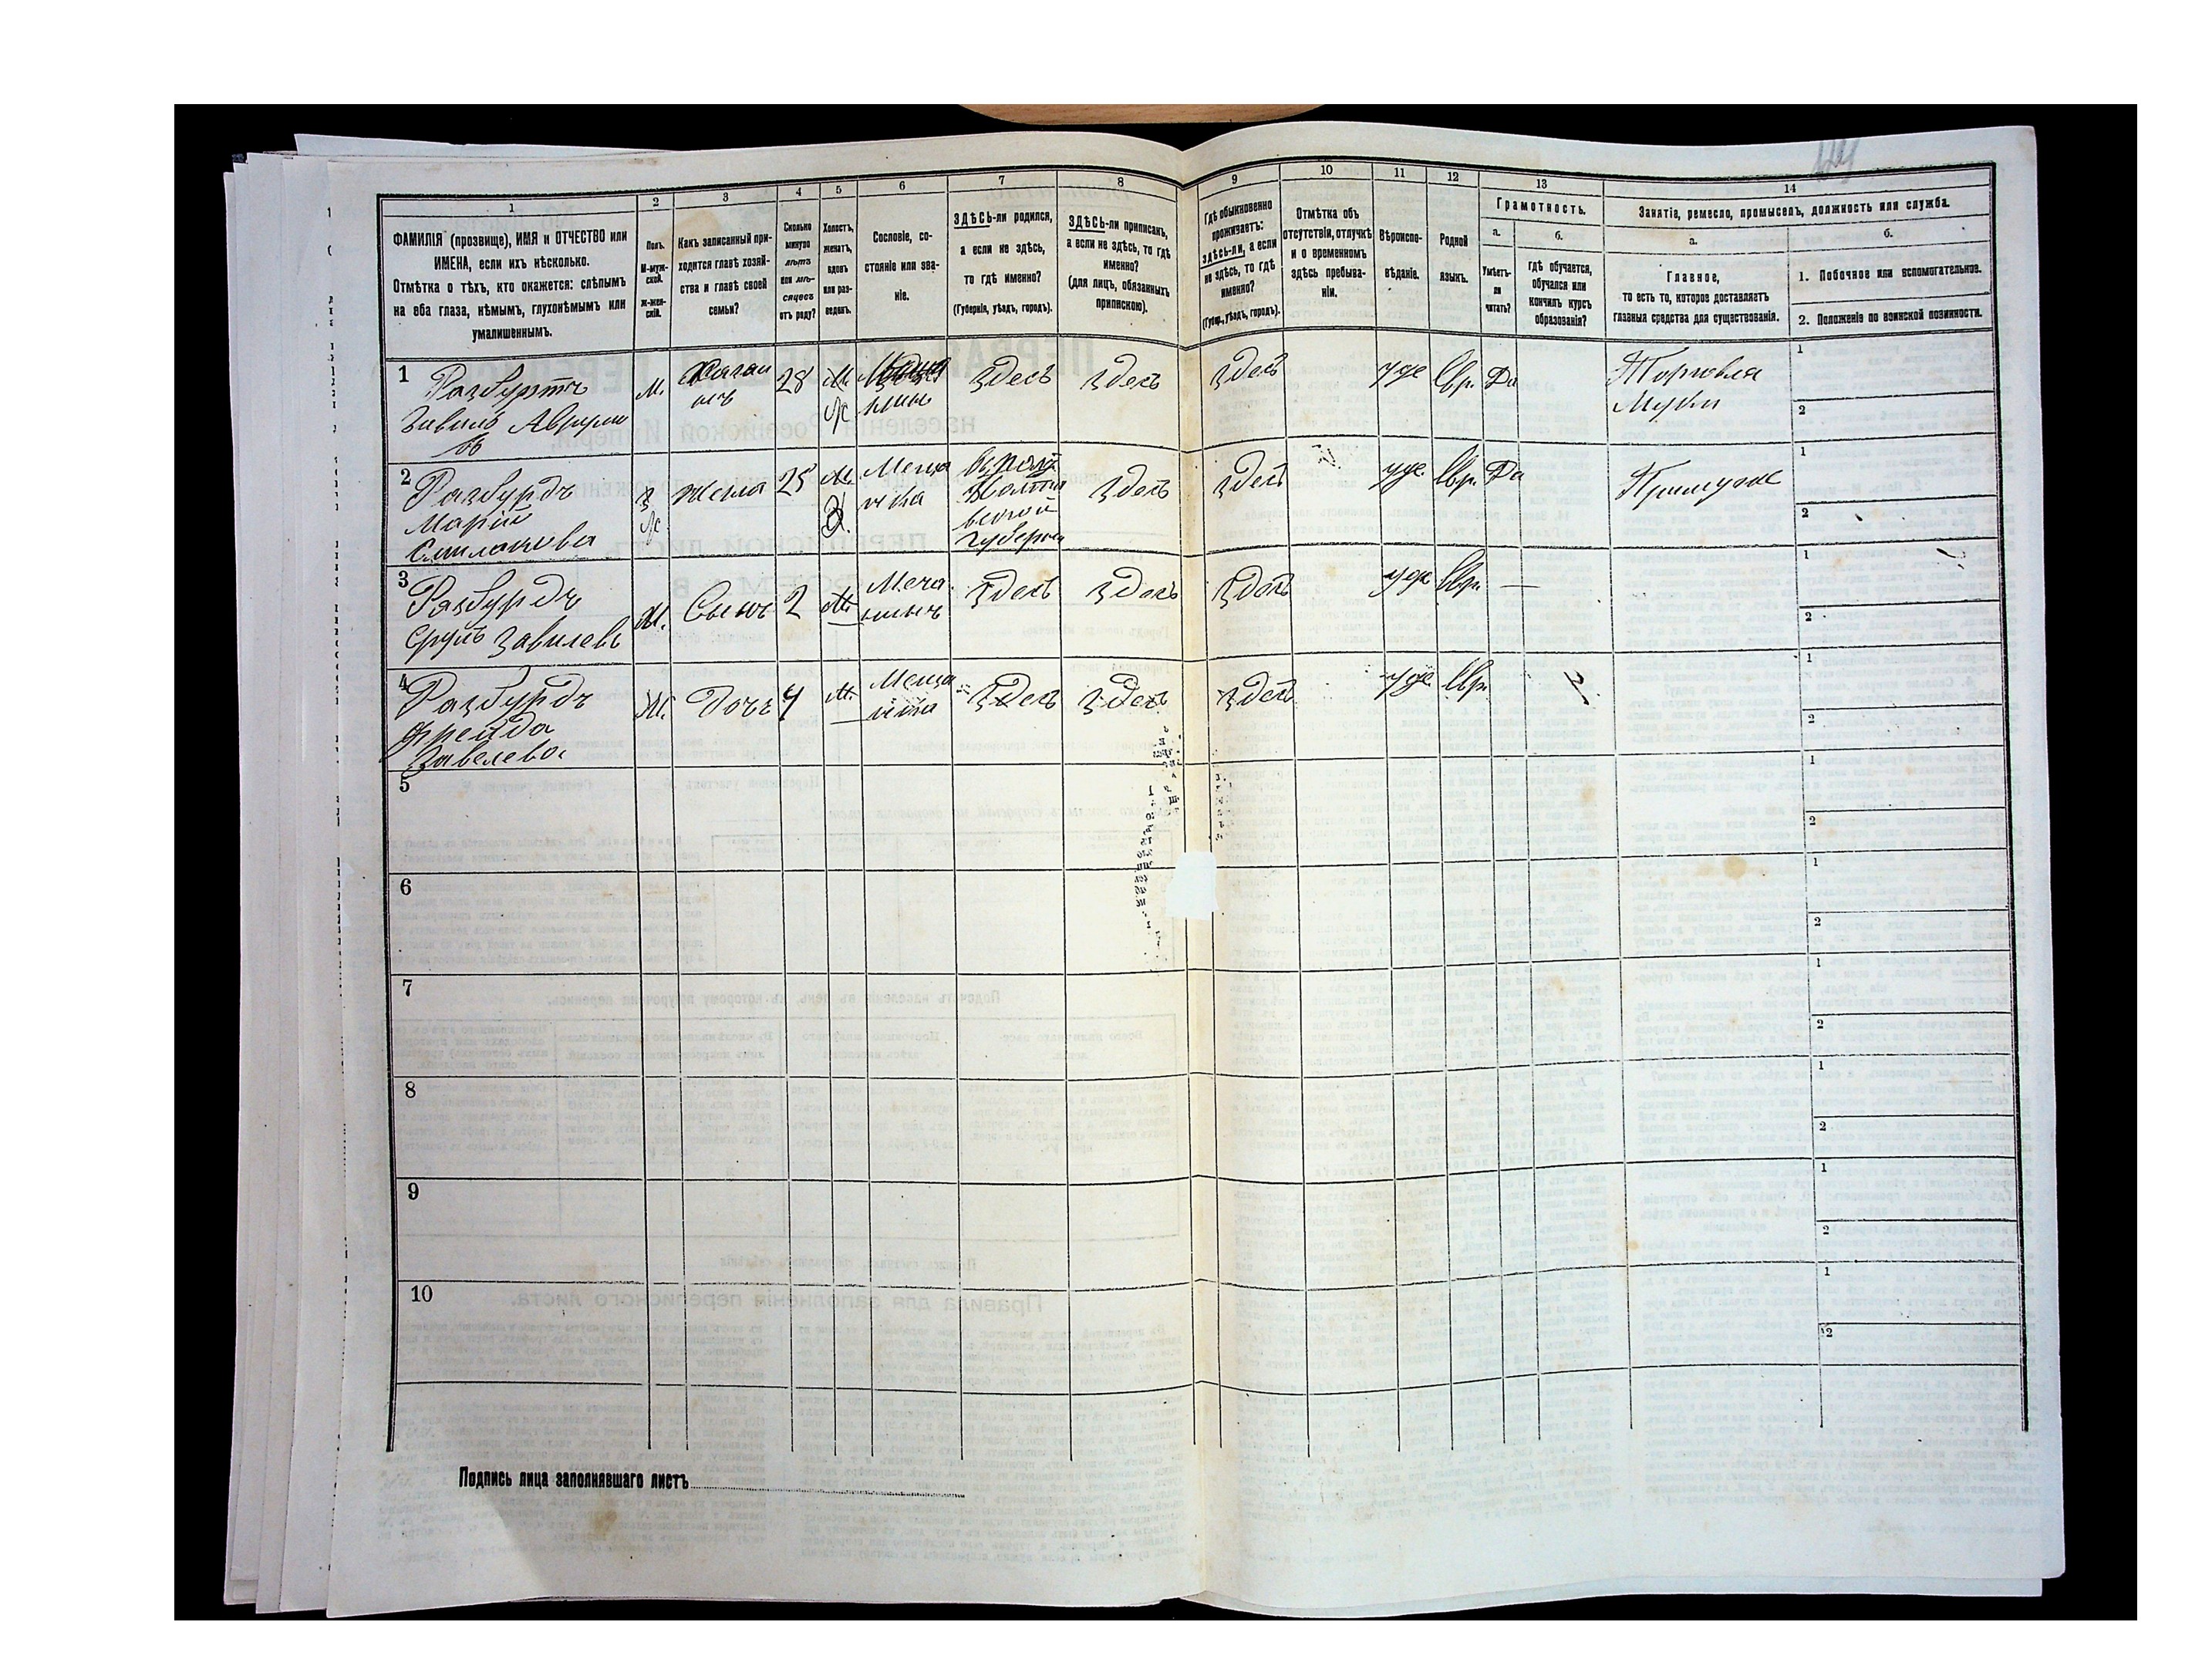 1 2 3 4 5 6 7 8 9 10 11 12 13 14
ФАМИЛІЯ (прозвище), ИМЯ и ОТЧЕСТВО или
ИМЕНА, если ихъ нѣсколько.
Отмѣтка о тѣхъ, кто окажется: слѣпымъ
на оба глаза, нѣмымъ, глухонѣмымъ или
умалишеннымъ.
Полъ.
М-муж-
ской.
Ж-жен-
скій.
Какъ записанный при-
ходится главѣ хозяй-
ства и главѣ своей
семьи?
Сколько
минуло
лѣтъ
или мѣ-
сяцевъ
отъ роду?
Холостъ,
женатъ,
вдовъ
или раз-
веденъ.
Сословіе, со-
стояніе или зва-
ніе.
ЗДѢСЬ-ли родился,
а если не здѣсь,
то гдѣ именно?
(Губернія, уѣздъ, городъ).
ЗДѢСЬ-ли приписанъ,
а если не здѣсь, то гдѣ
именно?
(для лицъ, обязанныхъ
припискою).
Гдѣ обыкновенно
проживаетъ:
здѣсь-ли, а если
не здѣсь, то гдѣ
именно?
(Губер., уѣздъ, городъ).
Отмѣтка объ
отсутствіи, отлучкѣ
и о временномъ
здѣсь пребыва-
ніи.
Вѣроиспо-
вѣданіе.
Родной
языкъ.
Грамотность.
а.
б.
Умѣетъ-
ли
читать?
гдѣ обучается,
обучался или
кончилъ курсъ
образованія?
Занятіе, ремесло, промыселъ, должность или служба.
а.
б.
Главное,
то есть то, которое доставляетъ
главныя средства для существованія.
1. Побочное или вспомогательное.
2. Положеніе по воинской повинности.
1
Разбуртъ
М.
28
Здесь
Здесь
Здесь
иуде
Евр.
Да
Торговля
Муки
1
2
2
Разбурдъ
Марія
Ж
Жена
25
Меща
нка
губерни
Здесь
Здесь
иуде.
Евр.
Да
1
2
3
Разбурдъ
Сруль Завилевъ
М.
Сынъ
2
Здесь
Здесь
Здесь
иуде
Евр.
—
1
2
4
Разбурдъ
Фрейда
Завелева
Ж.
Дочь
Меща
нка
Здесь
Здесь
Здесь
иуде.
Евр.
1
2
5
1
2
6
1
2
7
1
2
8
1
2
9
1
2
10
1
2
Подпись лица заполнявшаго листъ